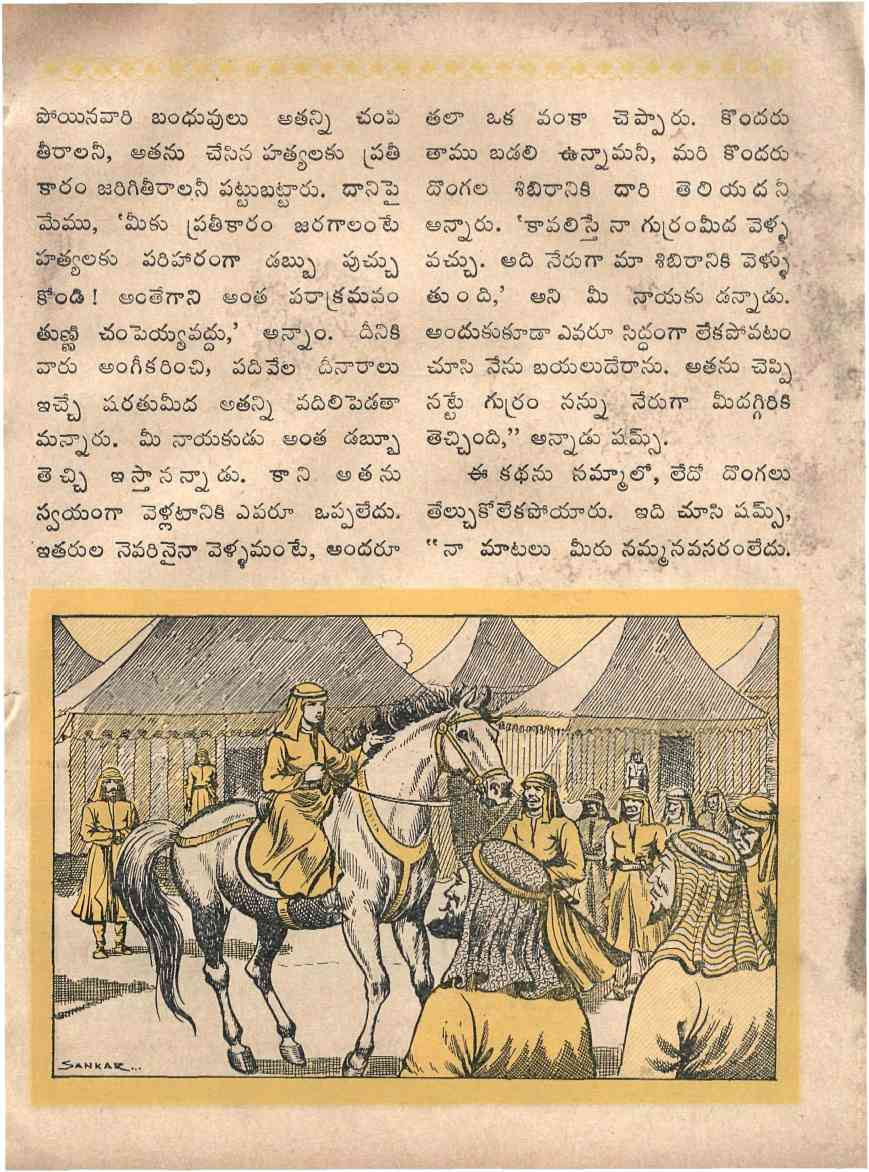 పోయినవారి బంధువులు అతన్ని చంపి
తీరాలనీ, అతను చేసిన హత్యలకు ప్రతీ
కారం జరిగితీరాలనీ పట్టుబట్టారు. దానిపై
మేము, ‘మీకు ప్రతీకారం జరగాలంటే
హత్యలకు పరిహారంగా డబ్బు పుచ్చు
కోండి! అంతేగాని అంత పరాక్రమవం
తుణ్ణి చంపెయ్యవద్దు,’ అన్నాం. దీనికి
వారు అంగీకరించి, పదివేల దీనారాలు
ఇచ్చే షరతుమీద అతన్ని వదిలిపెడతా
మన్నారు. మీ నాయకుడు అంత డబ్బూ
తెచ్చి ఇస్తానన్నాడు. కాని అతను
స్వయంగా వెళ్లటానికి ఎవరూ ఒప్పలేదు.
ఇతరుల నెవరినైనా వెళ్ళమంటే, అందరూ
తలా ఒక వంకా చెప్పారు. కొందరు
తాము బడలి ఉన్నామనీ, మరి కొందరు
దొంగల శిబిరానికి దారి తెలియదనీ
అన్నారు. ‘కావలిస్తే నా గుర్రంమీద వెళ్ళ
వచ్చు. అది నేరుగా మా శిబిరానికి వెళ్ళు
తుంది,’ అని మీ నాయకు డన్నాడు.
అందుకుకూడా ఎవరూ సిద్ధంగా లేకపోవటం
చూసి నేను బయలుదేరాను. అతను చెప్పి
నట్టే గుర్రం నన్ను నేరుగా మీదగ్గిరికి
తెచ్చింది,” అన్నాడు షమ్స్.
ఈ కథను నమ్మాలో, లేదో దొంగలు
తేల్చుకోలేకపోయారు. ఇది చూసి షమ్స్,
“నా మాటలు మీరు నమ్మనవసరంలేదు.
SANKAR...